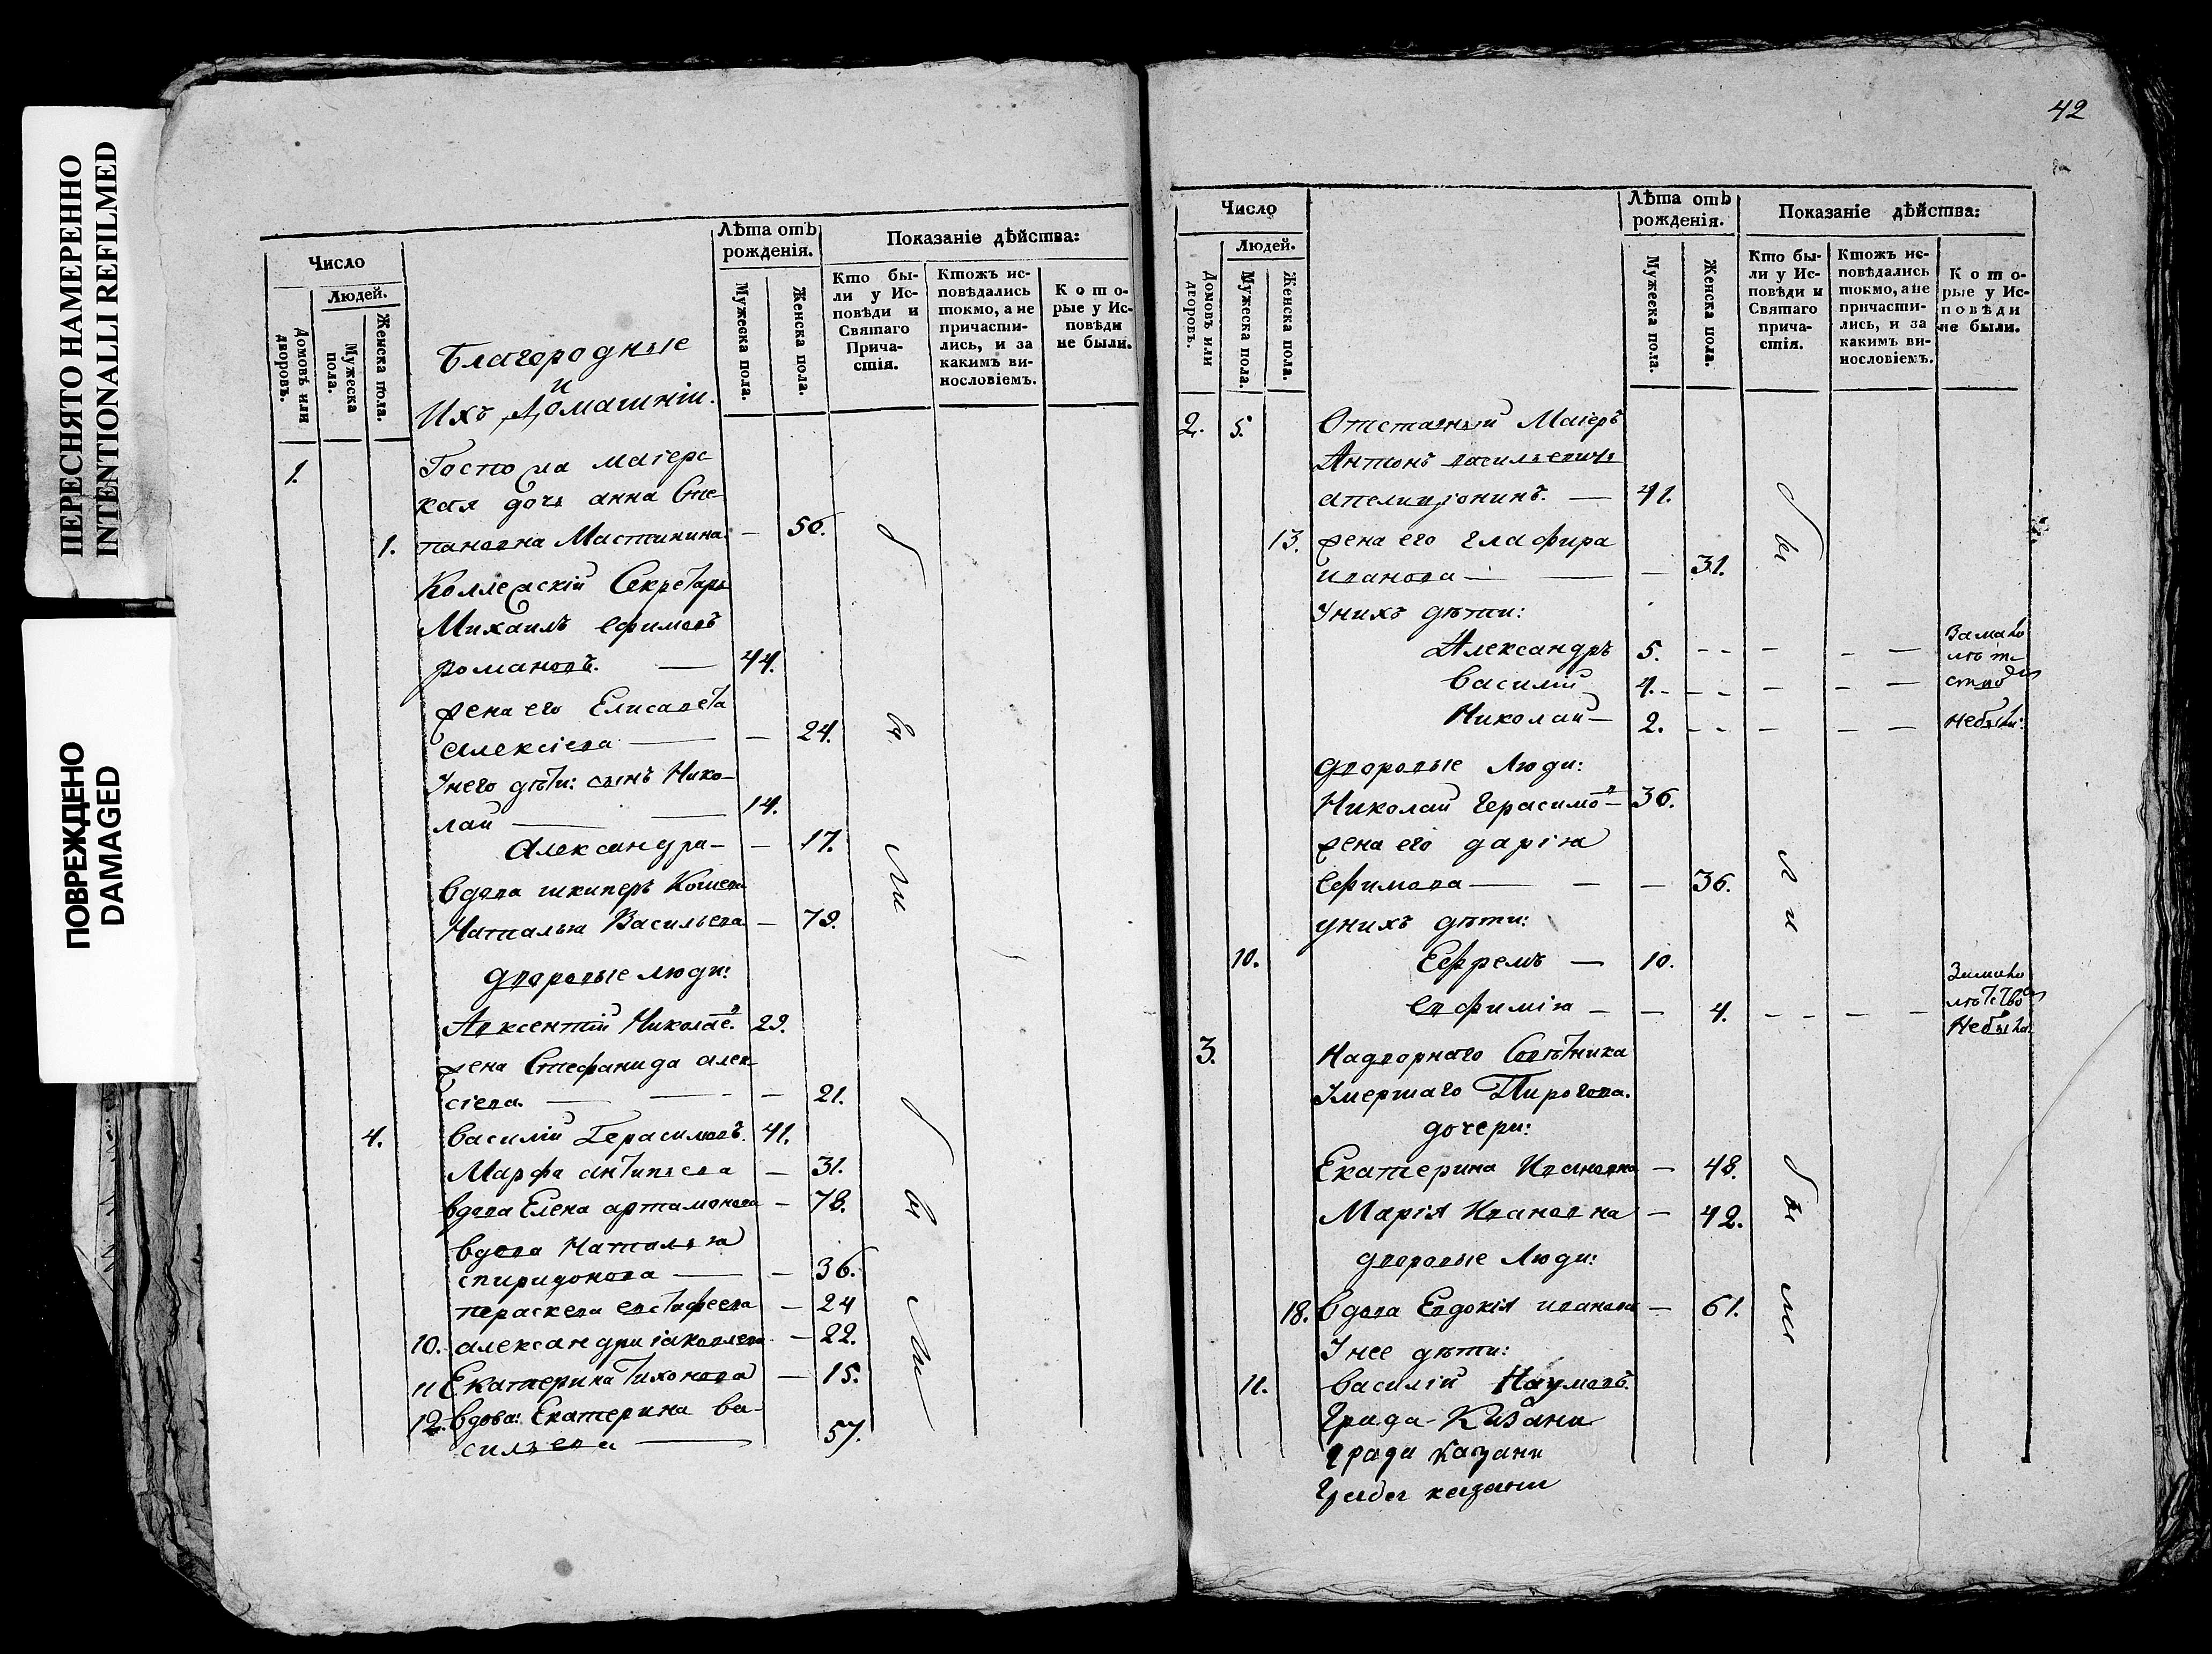 ПЕРЕСНЯТО НАМЕРЕННО
INTENTIONALLI REFILMED
ПОВРЕЖДЕНО
DAMAGED
Число
Людей.
Домовъ или дворовъ.
Мужеска пола.
Женска пола.
Благородные
и
Ихъ Домашніи.
Лѣта отъ
рожденія.
Мужеска пола.
Женска пола.
Показаніе дѣйства:
Кто бы-
ли у Ис-
повѣди и
Святаго
Прича-
стія.
Ктожъ ис-
повѣдались
токмо, а не
причасти-
лись, и за
какимъ ви-
нословіемъ.
Кото-
рые у Ис-
повѣди
не были.
1. Госпожа маіерс
кая дочь анна Сте
1. пановна Мастинина — 56.
Коллежскій Секретарь
Михаилъ ефимовъ
романовъ. — 44.
жена его Елисавета
алексіева — — 24.
Унего дѣти: сынъ Нико-
лай — — 14.
Александра — — 17.
вдова шкиперъ
Наталья Васильева — 79.
дворовые люди:
Авксентій Николаев. 29.
жена Стефанида алек-
сіева. — — — 21.
4. василій Герасимовъ. 41.
Марфа антипьева — 31.
вдова Елена артамонова — 78.
вдова Наталья
спиридонова — — 36.
параскева евстафеева — 24
10. александра іаковлева — 22.
11 Екатерина тихонова — 15.
12. вдова: Екатерина ва-
сильева — 57.
бы
ли
бы
ли
42
Число
Людей.
Домовъ или дворовъ.
Мужеска пола.
Женска пола.
Лѣта отъ
рожденія.
Мужеска пола.
Женска пола.
Показаніе дѣйства:
Кто бы-
ли у Ис-
повѣди и
Святаго
прича-
стія.
Ктожъ ис-
повѣдались
токмо, а не
причасти-
лись, и за
какимъ ви-
нословіемъ.
Кото-
рые у Ис-
повѣди
не были.
2. 5. Отставный Маіеръ
Антонъ васильевичь
— 41.
13. жена его глафира
иванова — — — 31.
Унихъ дѣти:
Александръ 5. - - - - — Замало
василій 4. - - - - - — лѣт
ством
Николай — 2. - - - - — Небыли:
дворовые Люди:
Николай Герасимов — 36.
жена его дарія
ефимова — — — 36.
унихъ дѣти:
10. Ефремъ — 10.
евфимія — — 4. - - - - Замало
лѣтство
Небыла
3. Надворнаго Совѣтника
Умершаго Пирогова.
дочери:
Екатерина Ивановна — 48.
Марія Ивановна — 42.
дворовые Люди:
18. вдова Евдокія иванова — 61.
Унее дѣти:
11. василій Наумовъ.
Града Казани
града казани
Града казани
бы
ли
бы
ли